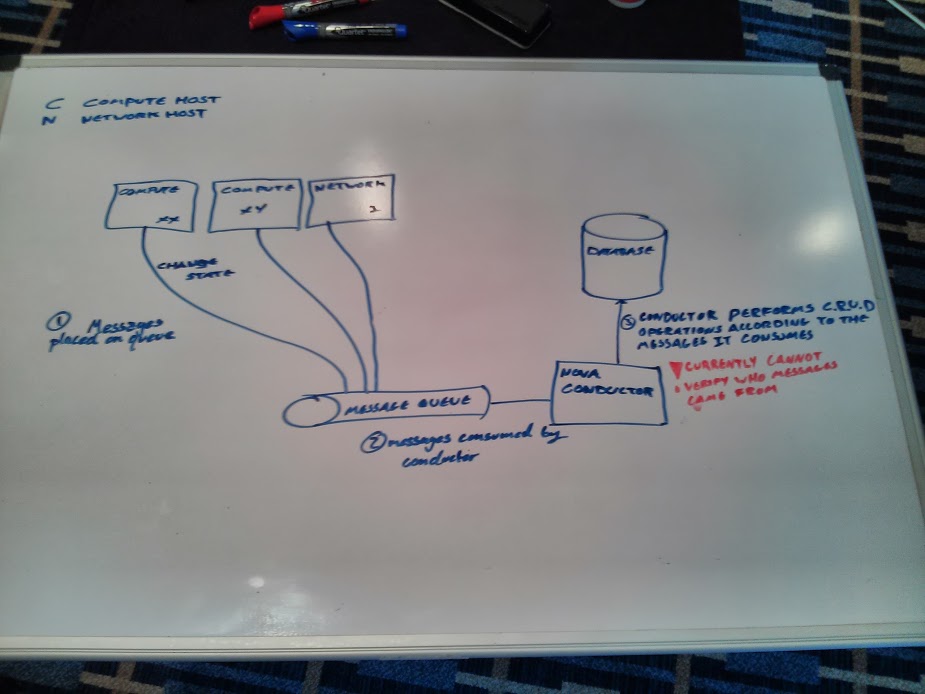 C COMPUTE HOST
N NETWORK HOST
COMPUTE
XX
COMPUTE
XY
NETWORK
1
CHANGE
STATE
① Messages
placed on queue
MESSAGE QUEUE
② messages consumed by
conductor
NOVA
CONDUCTOR
DATABASE
③ CONDUCTOR PERFORMS C.R.U.D
OPERATIONS ACCORDING TO THE
MESSAGES IT CONSUMES
CURRENTLY CANNOT
VERIFY WHO MESSAGES
CAME FROM
Quartet
Quartet